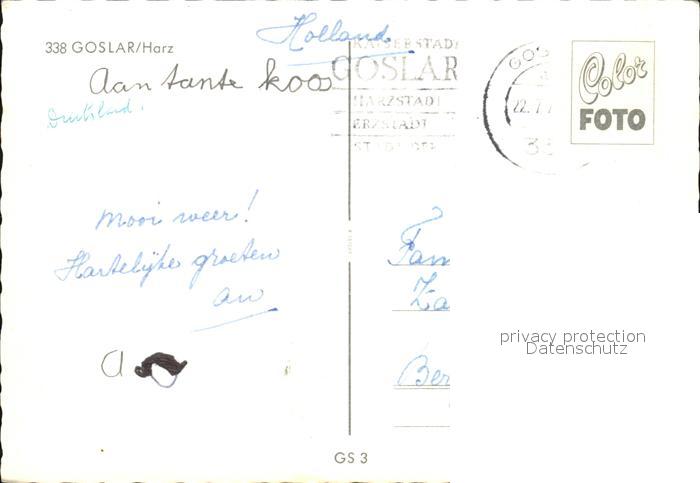 Holland
338 GOSLAR/Harz
Aan tante koos
Duitsland.
KAISERSTADT
GOSLAR
HARZSTADT
ERZSTADT
GOS
22.7.
Color
FOTO
Mooi weer!
Hartelijke groeten
an
a
Fam
Za
Ber
privacy protection
Datenschutz
GS 3